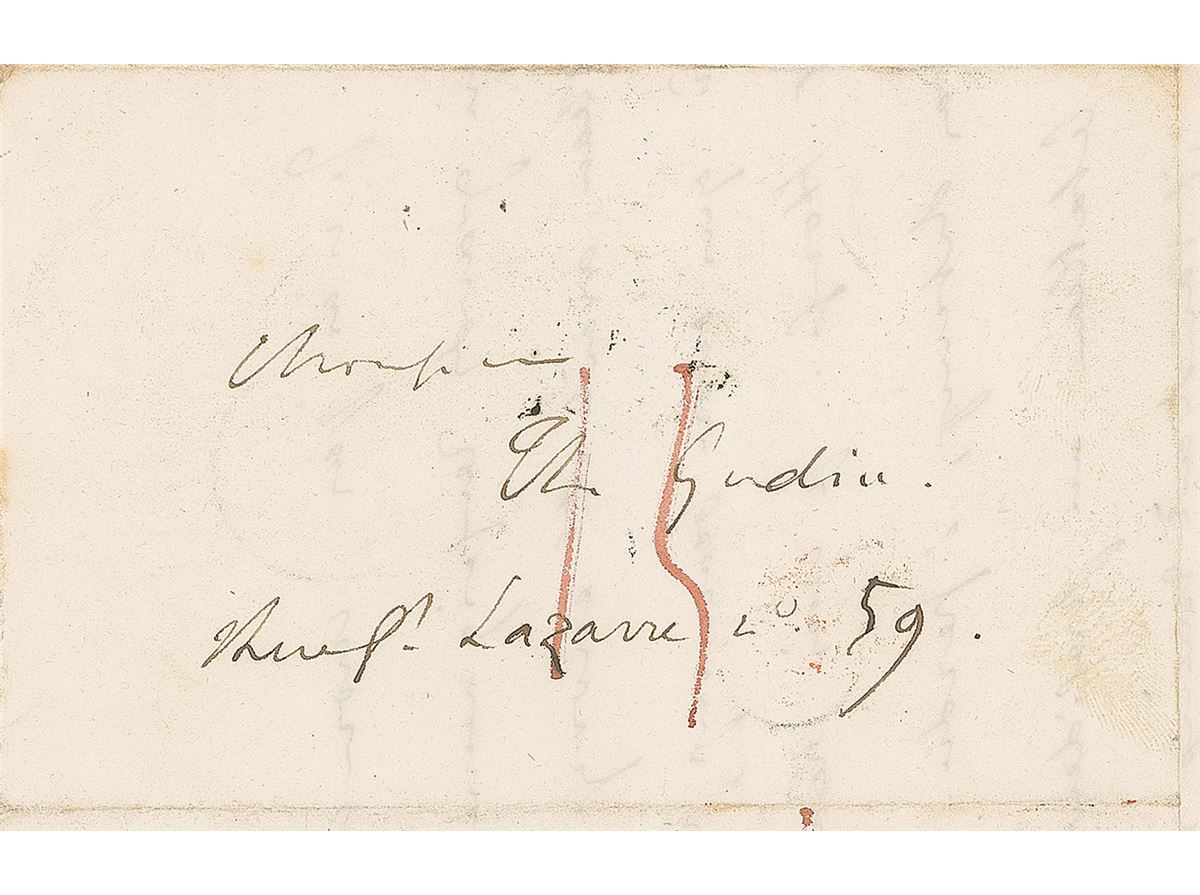 Monsieur
Th. Gudin.
Rue St. Lazarre no. 59.
15